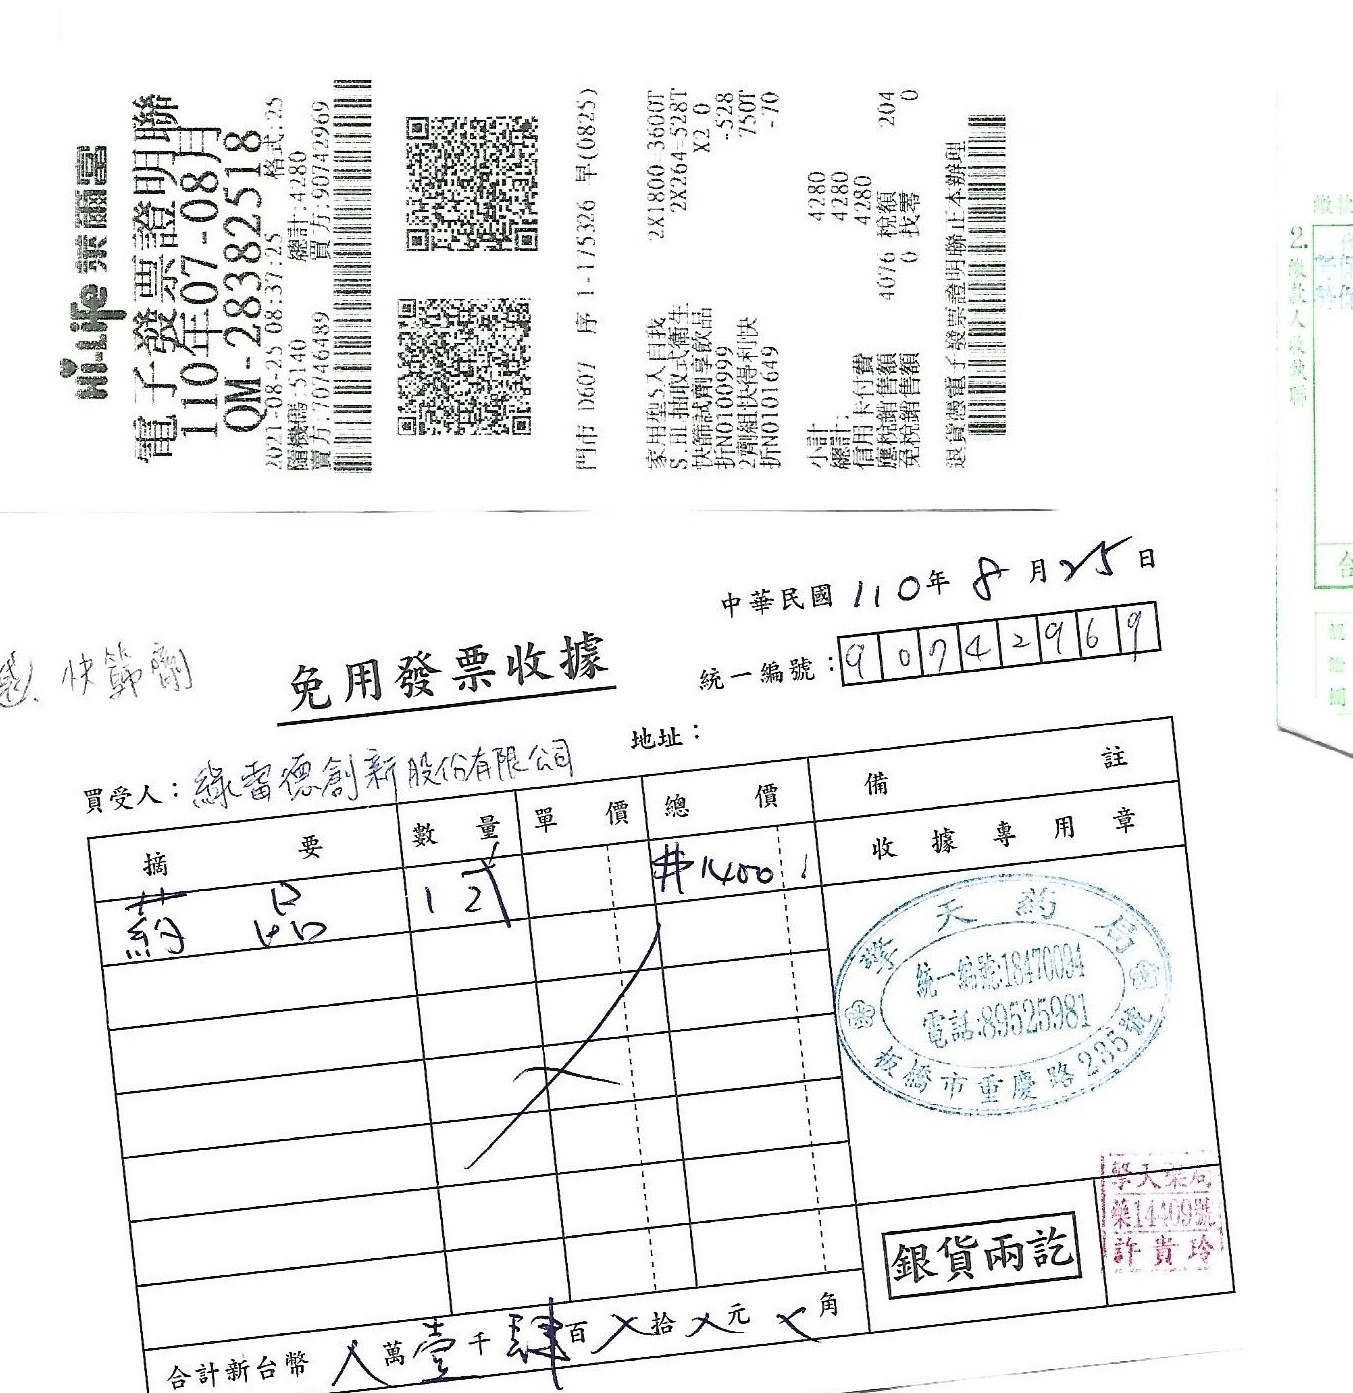 Hi-Life 萊爾富
電子發票證明聯
110年07-08月
QM-28382518
2021-08-25 08:37:25 格式:25
隨機碼:5140 總計:4280
賣方:70746489 買方:90742969
門市 D607 序 1-175326 早(0825)
家用型5人自我 2X1800=3600T
S.HL抽取式衛生 2X264=528T
快篩試劑享飲品 X2 0
折N0100999 -528
2劑組快得利快 750T
折N0101649 -70
小計 4280
總計: 4280
信用卡付費 4280
應稅銷售額 4076 稅額 204
免稅銷售額 0 找零 0
退貨憑電子發票證明聯正本辦理
中華民國 110 年 8 月 25 日
統一編號：90742969
快篩劑
免用發票收據
買受人：綠雷德創新股份有限公司
地址：
摘要 數量 單價 總價 備註
收據專用章
藥品 1 #1400
擎天药局
統一編號:18470094
電話:89525981
板橋市重慶路235號
銀貨兩訖
擎天藥局
藥14409號
許貴玲
合計新台幣 萬壹千肆百 拾 元 角
2.繳款人收執聯